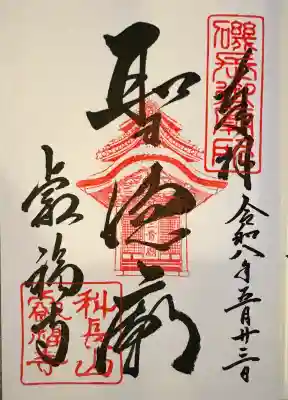 奉拝
令和八年五月廿三日
聖徳廟
叡福寺
磯長御廟印
科長山
叡福寺